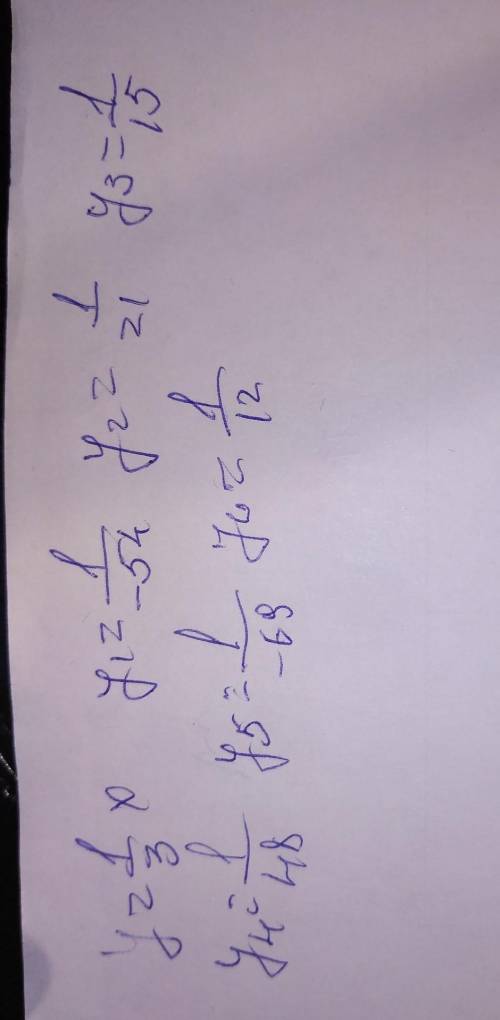 y = 1/3 x y1 = 1/-54 y2 = 1/21 y3 = 1/15
y4 = 1/48 y5 = 1/-69 y6 = 1/12